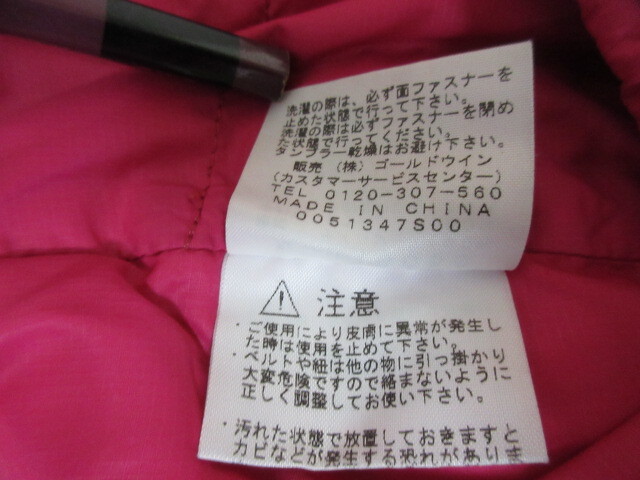 洗濯の際は、必ず面ファスナーを
止めた状態で行って下さい。
洗濯の際は必ずファスナーを閉め
た状態で行ってください。
タンブラー乾燥はお避け下さい。
販売 (株) ゴールドウイン
(カスタマーサービスセンター)
TEL 0120-307-560
MADE IN CHINA
0051347S00
注意
・ご使用により皮膚に異常が発生し
た時は使用を止めて下さい。
・ベルトや紐は他の物に引っ掛かり
大変危険ですので絡まないように
正しく調整してお使い下さい。
・汚れた状態で放置しておきますと
カビなどが発生する恐れがありま